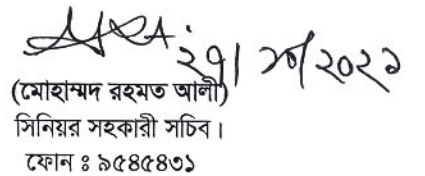 ২৭/১০/২০২১
(মোহাম্মদ রহমত আলী)
সিনিয়র সহকারী সচিব।
ফোন ঃ ৯৫৪৫৪৩১